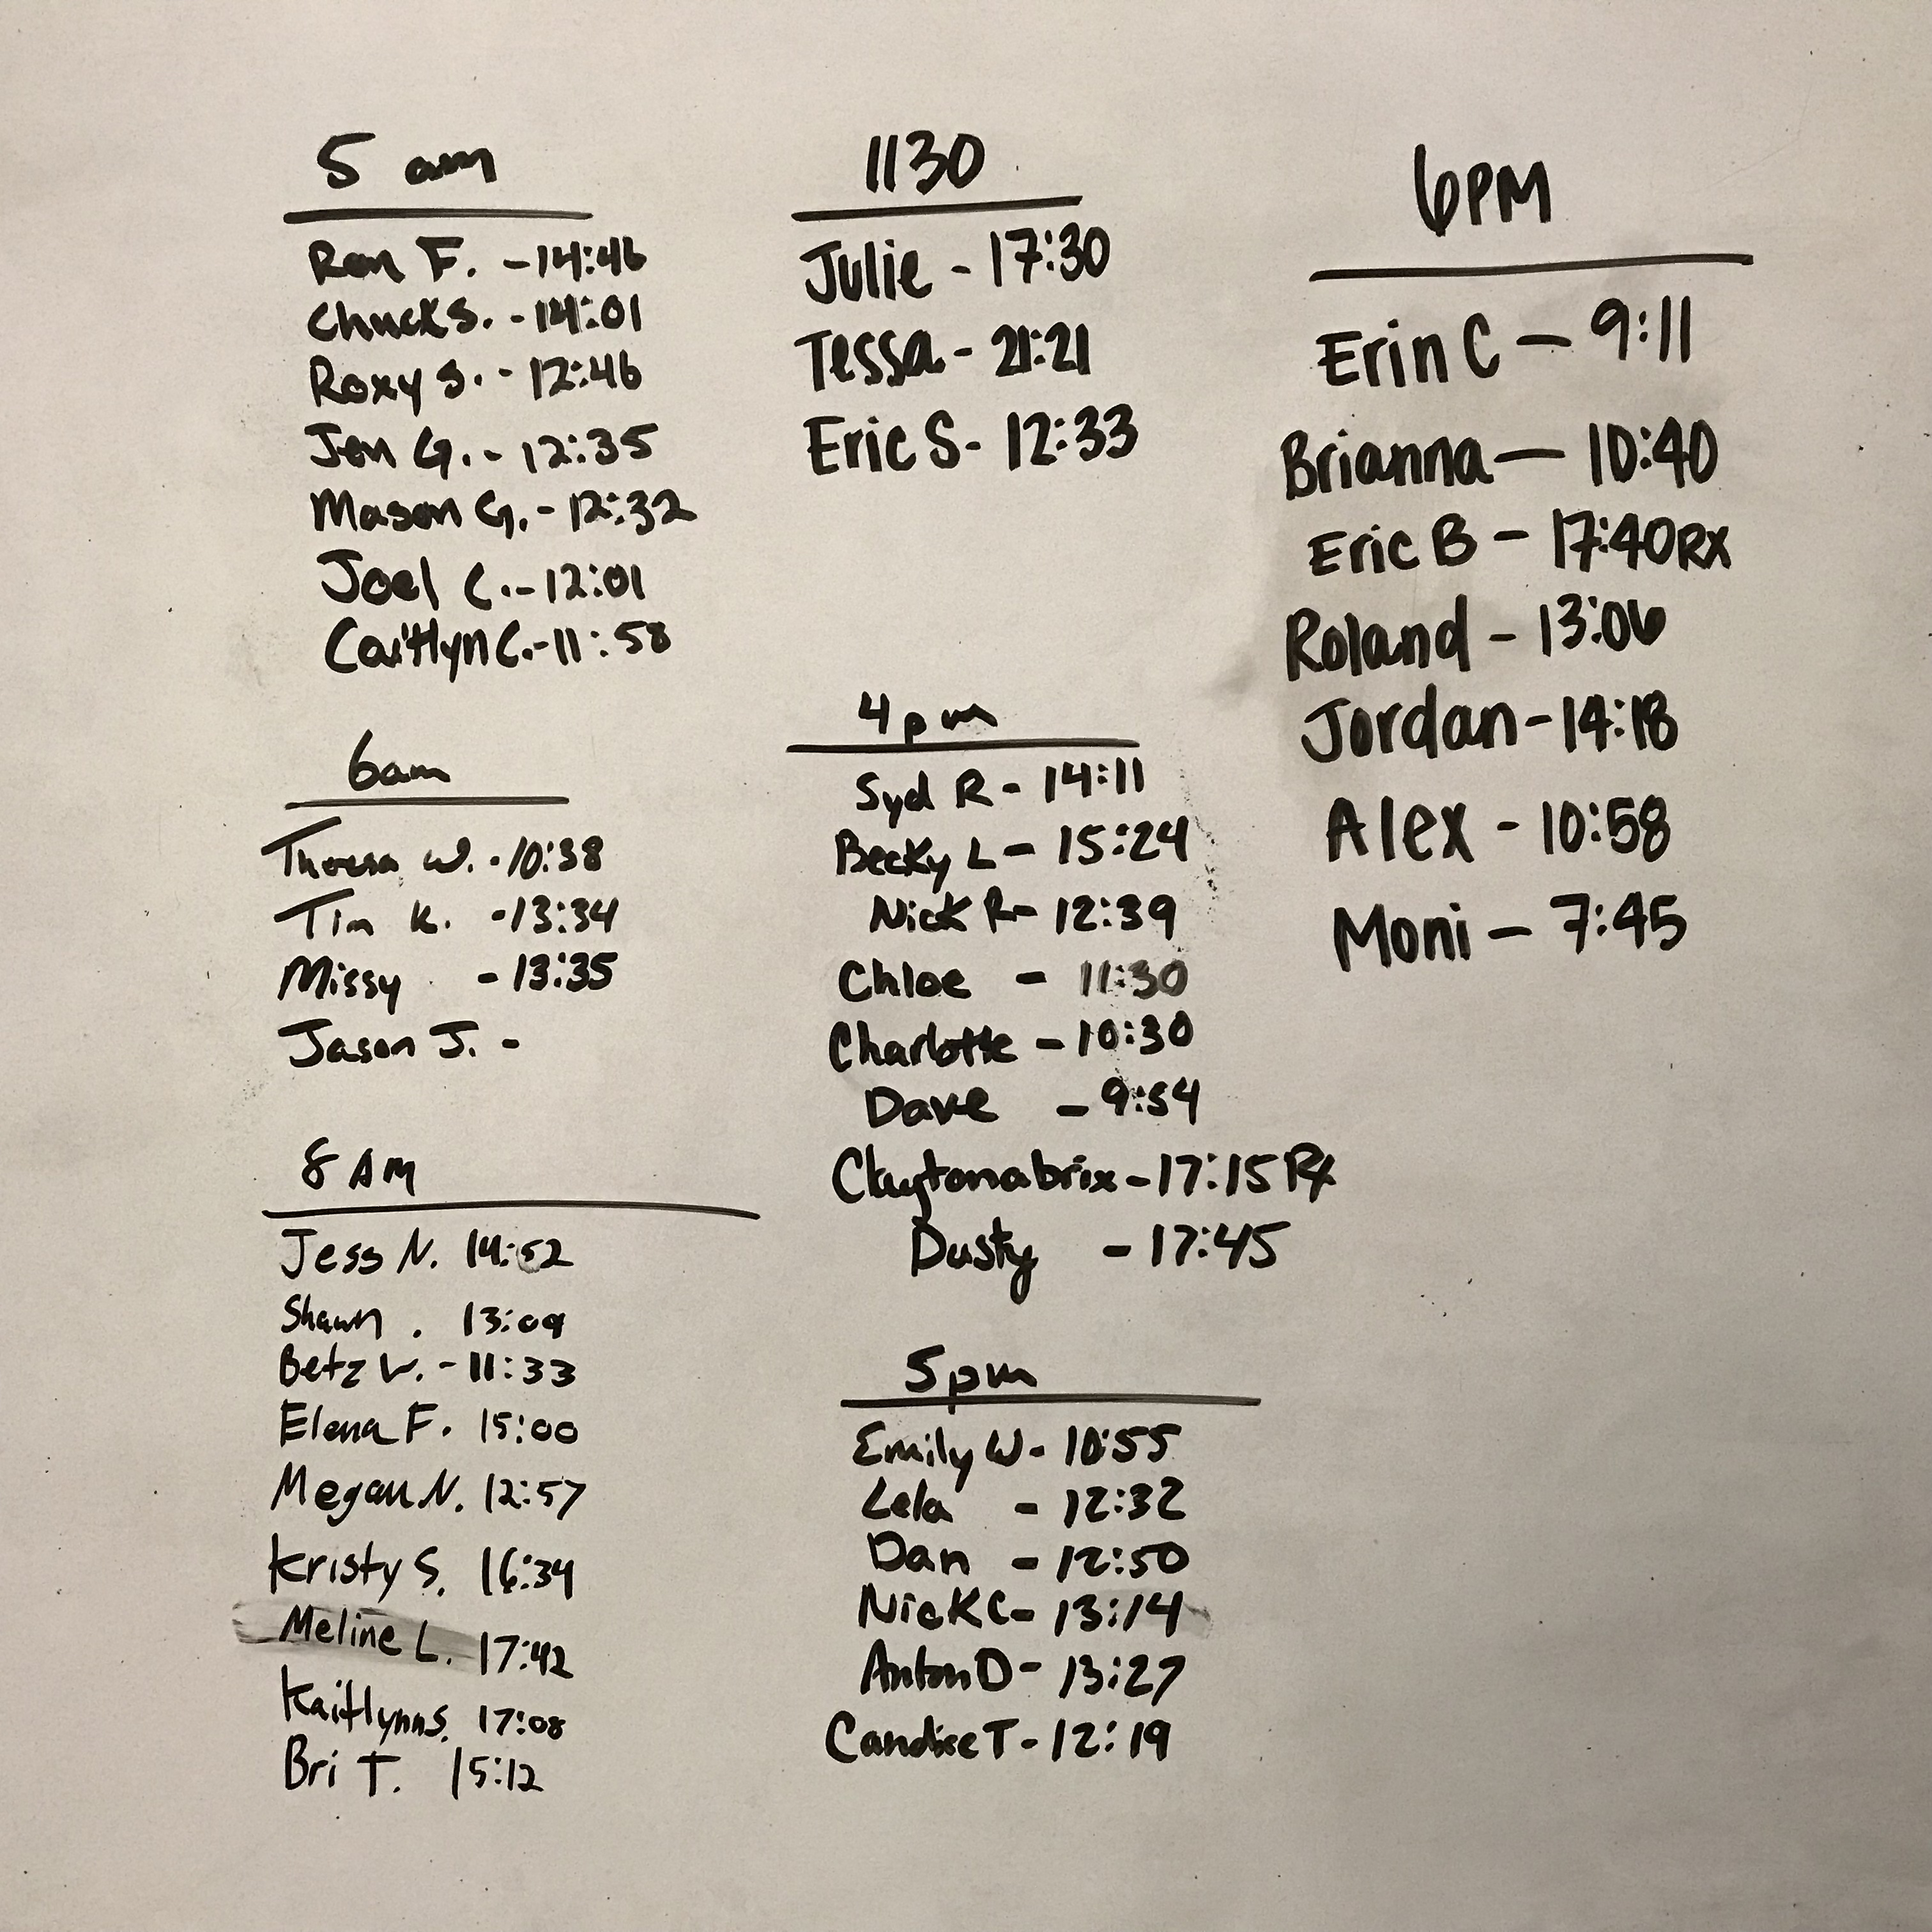 5 am
Ron F. - 14:46
Chuck S. - 14:01
Roxy S. - 12:46
Jen G. - 12:35
Mason G. - 12:32
Joel C. - 12:01
Caitlyn C. - 11:58
6am
Theresa W. - 10:38
Tim K. - 13:34
Missy - 13:35
Jason J. -
8 AM
Jess N. 14:52
Shawn . 13:09
Betz W. - 11:33
Elena F. 15:00
Megan N. 12:57
Kristy S. 16:34
Meline L. 17:42
Kaitlynn S. 17:08
Bri T. 15:12
1130
Julie - 17:30
Tessa - 21:21
Eric S - 12:33
4pm
Syd R - 14:11
Becky L - 15:24
Nick R - 12:39
Chloe - 11:30
Charlotte - 10:30
Dave - 9:54
Claytonabrix - 17:15 Rx
Dusty - 17:45
5pm
Emily W - 10:55
Lela - 12:32
Dan - 12:50
Nick C - 13:14
Anton D - 13:27
Candice T - 12:19
6PM
Erin C — 9:11
Brianna — 10:40
Eric B - 17:40 RX
Roland - 13:06
Jordan - 14:18
Alex - 10:58
Moni - 7:45